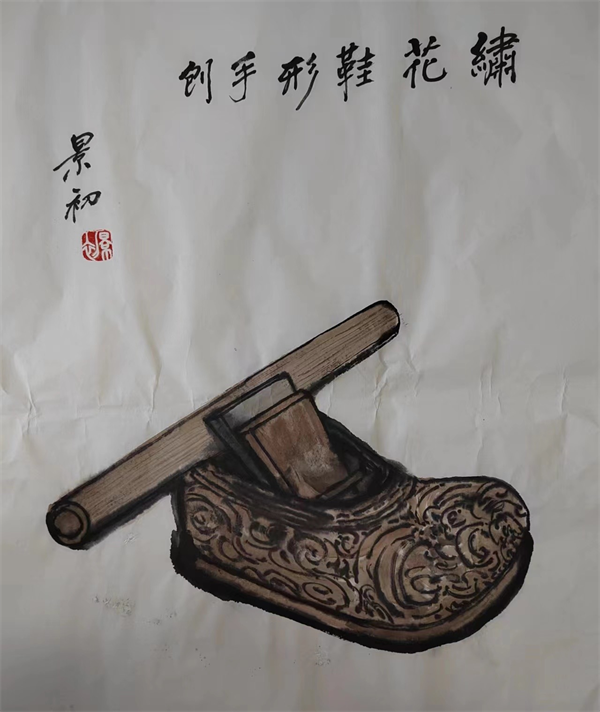 繡花鞋形手刨
景初